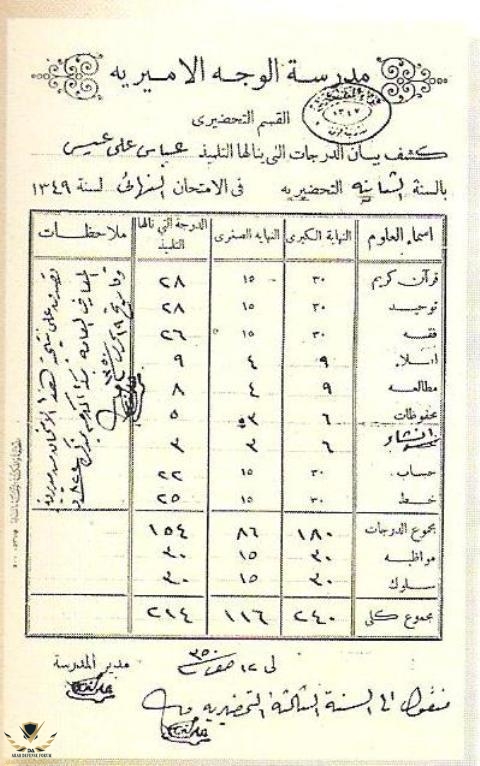 مدرسة الوجه الاميريه
القسم التحضيرى
١٣٤٧
كشف بيان الدرجات التى ينالها التلميذ عباس على عيسى
بالسنة الثانيه التحضيريه فى الامتحان النهائى لسنة ١٣٤٩
اسماء العلوم النهاية الكبرى النهايه الصغرى الدرجة التى نالها التلميذ ملاحظات
قرآن كريم ٣٠ ١٥ ٢٨
توحيد ٣٠ ١٥ ٢٨
فقه ٣٠ ١٥ ٢٦
املاء ٩ ٤ ٩
مطالعه ٩ ٤ ٨
محفوظات ٦ ٣ ٥
انشاء ٦ ٣ ٣
حساب ٣٠ ١٥ ٢٢
خط ٣٠ ١٥ ٢٥
مجموع الدرجات ١٨٠ ٨٦ ١٥٤
مواظبه ٣٠ ١٥ ٣٠
سلوك ٣٠ ١٥ ٣٠
مجموع كلى ٢٤٠ ١١٦ ٢١٤
فى ١٢ صفر ٣٥٠
مدير المدرسة
منقول الى السنة الثالثة التحضيريه
DA
ARAB DEFENSE FORUM